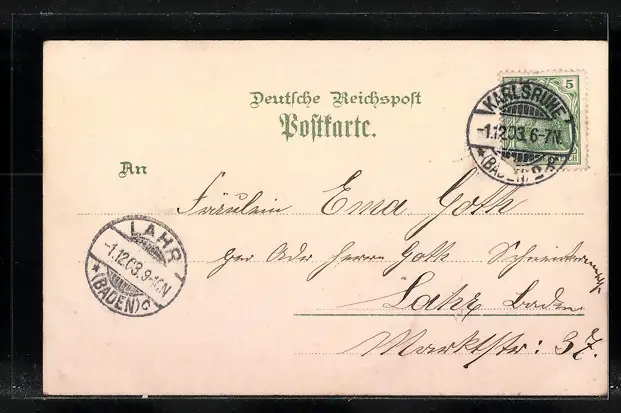 Deutsche Reichspost
Postkarte.
5
KARLSRUHE
-1.12.03. 6-7N.
(BADEN)
An
Fräulein Ema Goth
per Adr Herrn Goth
Lahr Baden
Marktstr: 37.
LAHR
-1.12.03. 9-10N
* (BADEN) C